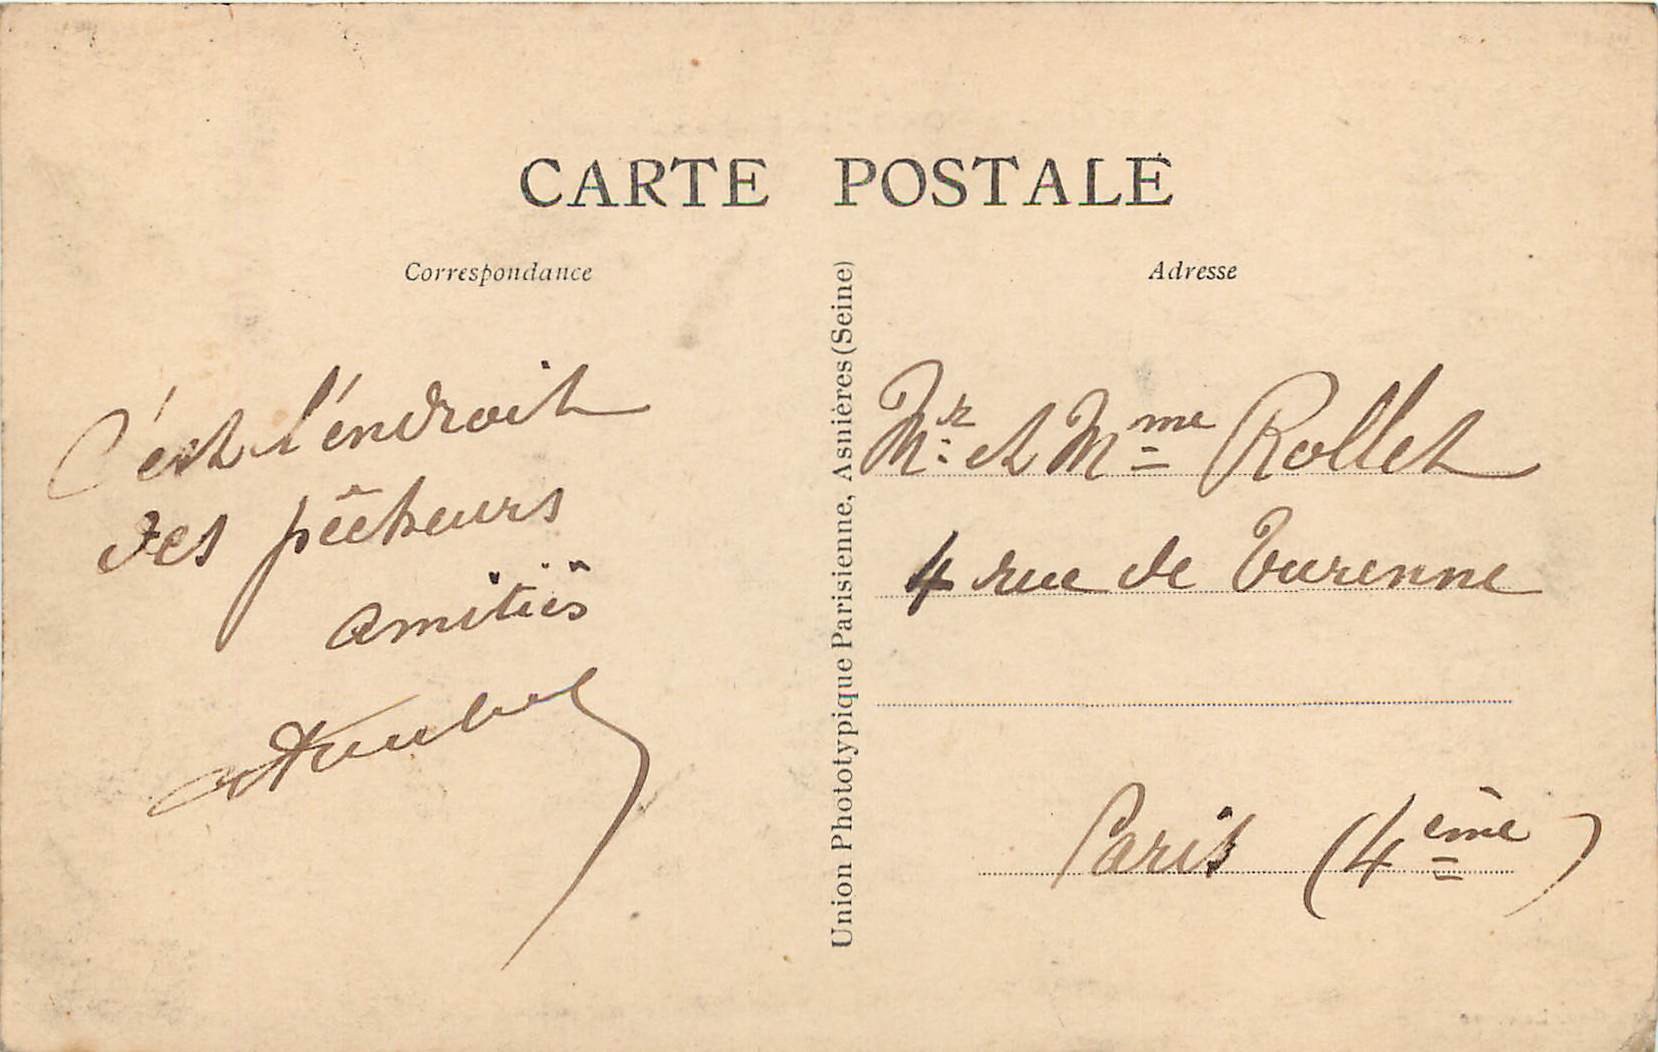 CARTE POSTALE
Correspondance
C'est l'endroit
des pêcheurs
amitiés
Union Phototypique Parisienne, Asnières (Seine)
Adresse
Mr et Mme Rollet
4 rue de Turenne
Paris (4ème)